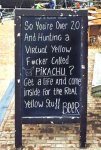 So You're Over 20
And Hunting a
Virtual Yellow
F*cker Called
"PIKACHU"?
Get a life and come
inside for the Real
Yellow Stuff BEER